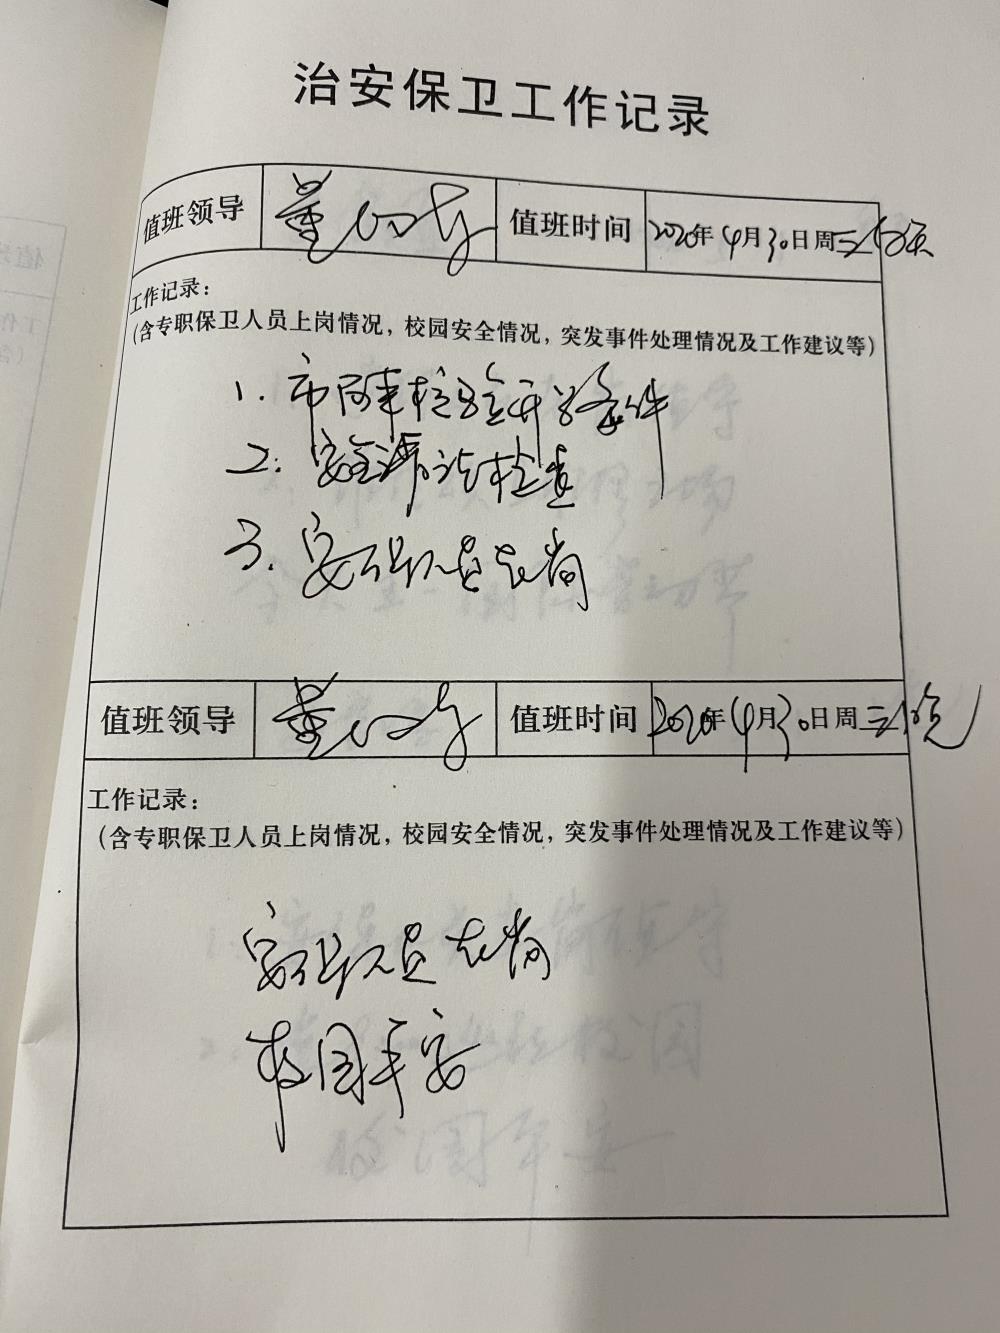 治安保卫工作记录
值班领导 董 值班时间 2020年4月30日周三白天
工作记录：
（含专职保卫人员上岗情况，校园安全情况，突发事件处理情况及工作建议等）
1. 市局来校验开学条件
2. 安全 检查
3. 安保人员在岗
值班领导 董 值班时间 2020年4月30日周三晚
工作记录：
（含专职保卫人员上岗情况，校园安全情况，突发事件处理情况及工作建议等）
安保人员在岗
校园平安